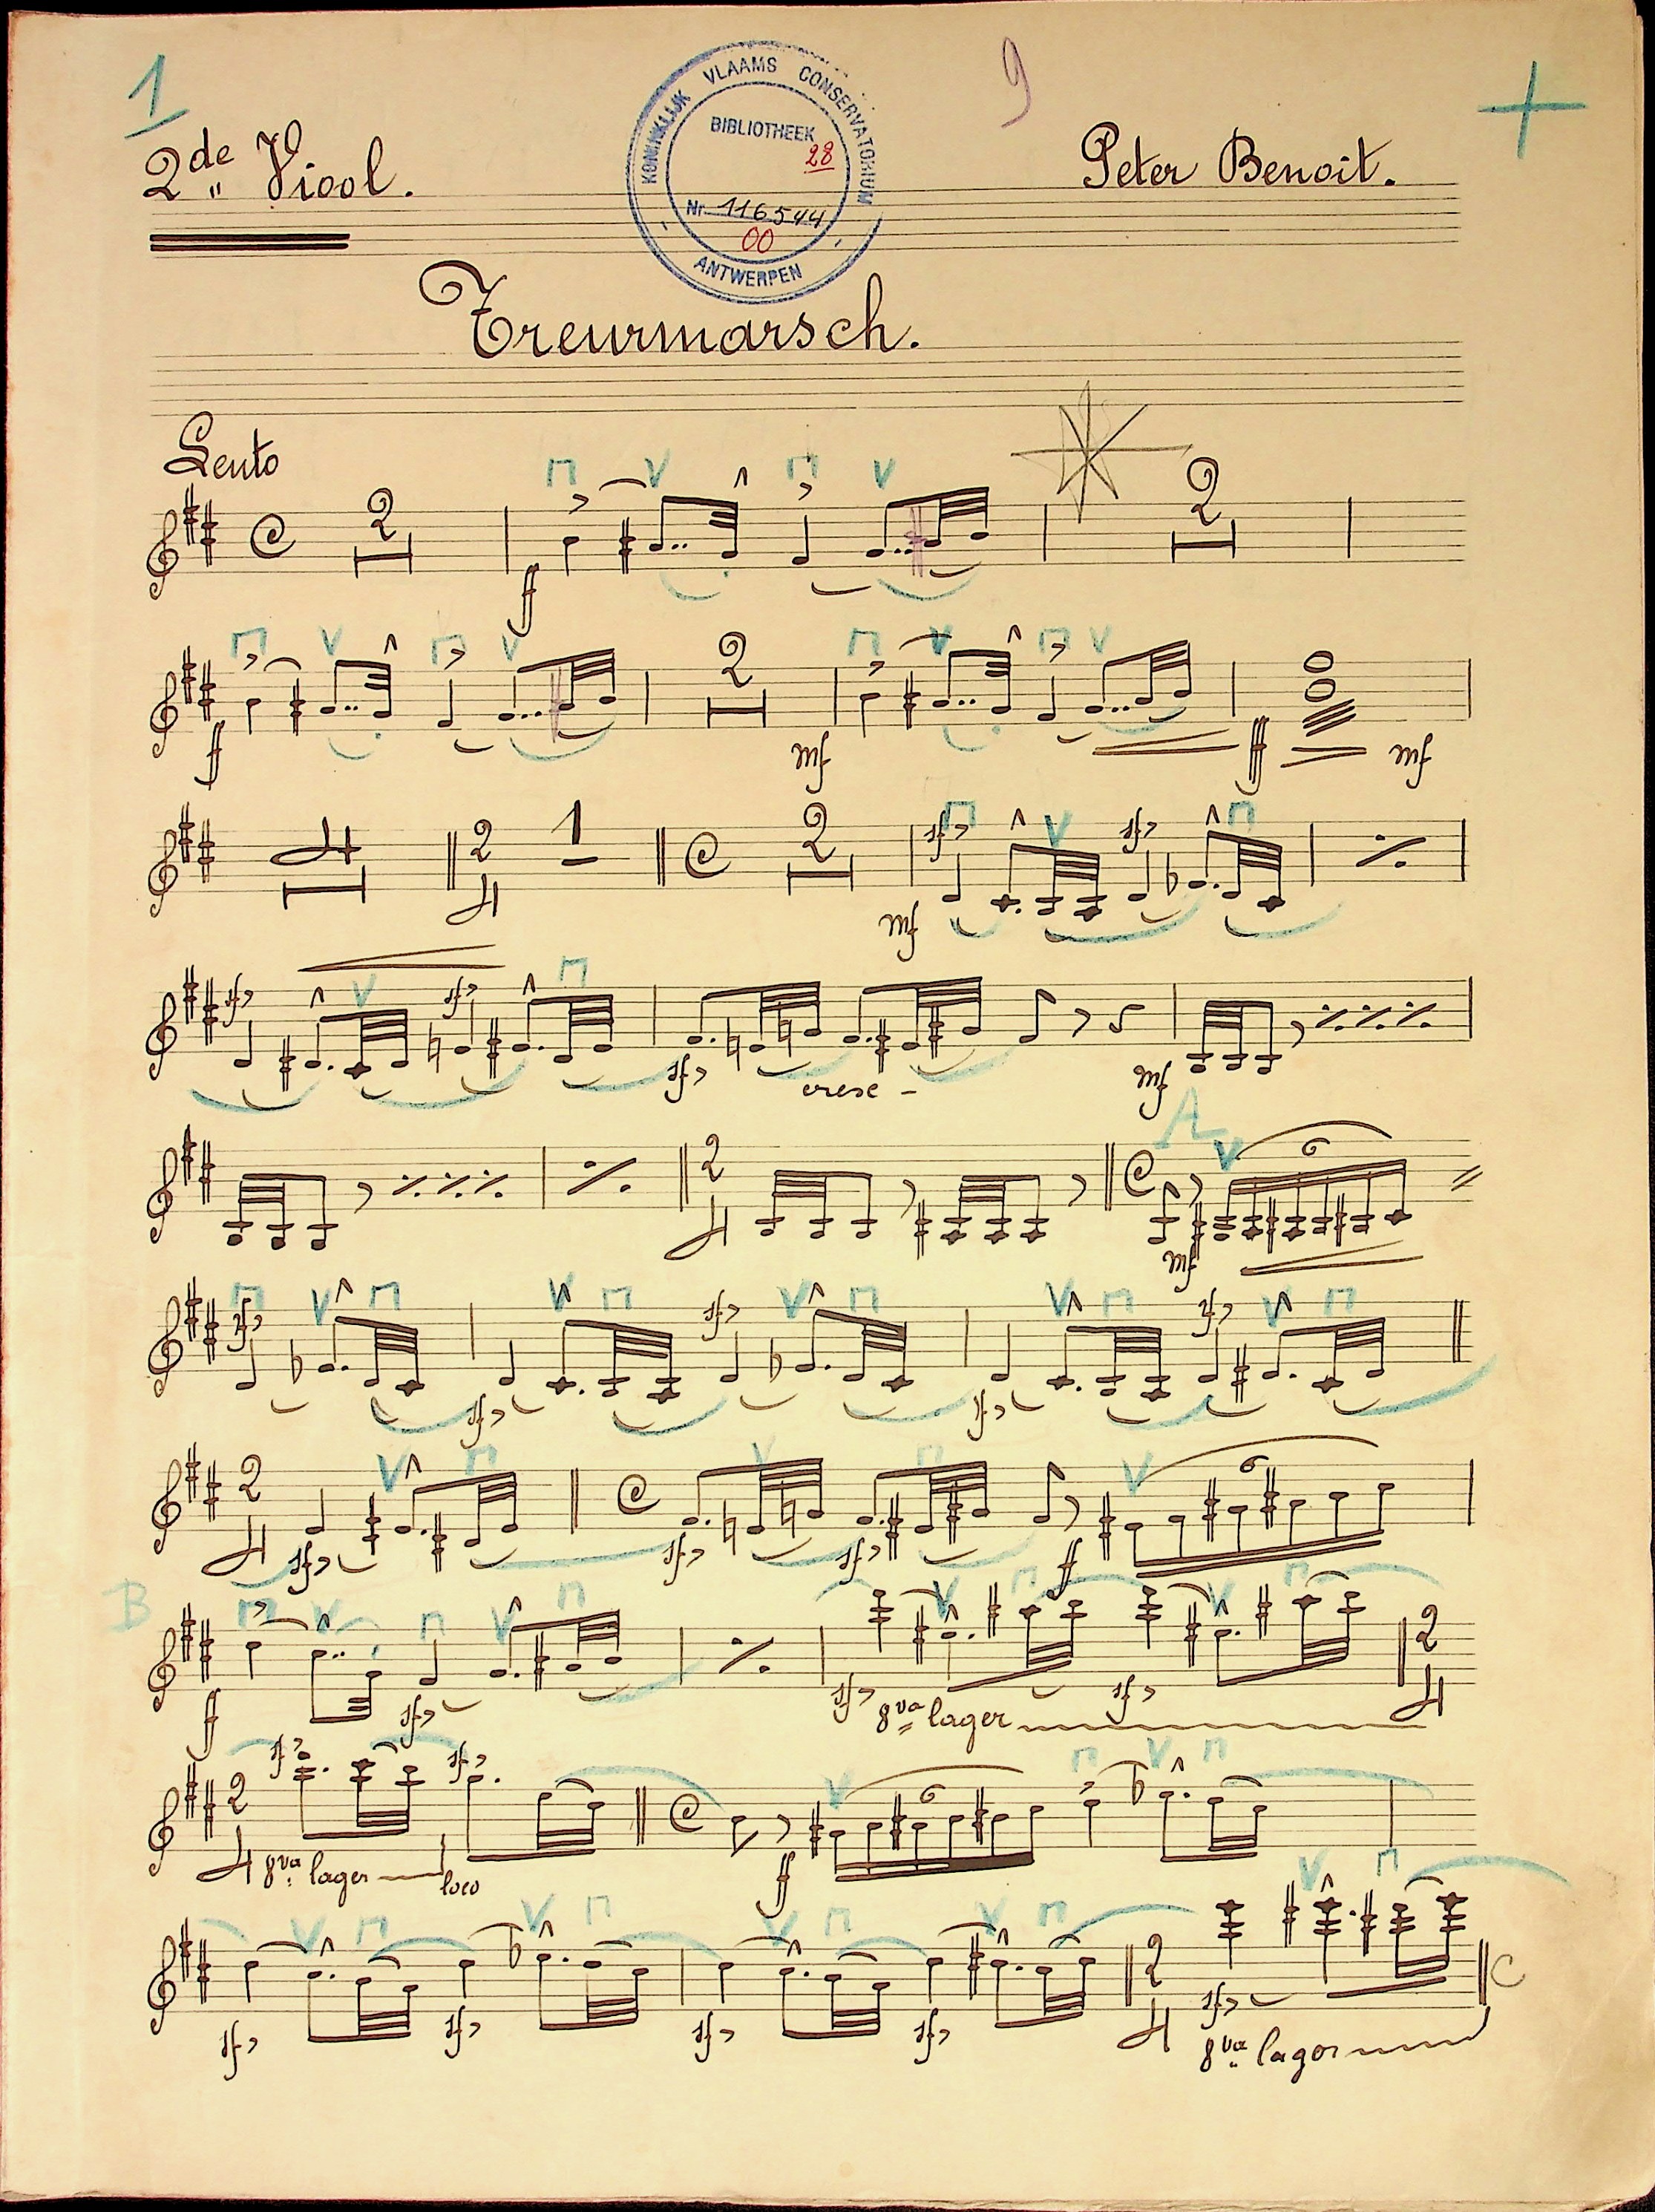 1
9
+
KONINKLIJK VLAAMS CONSERVATORIUM
BIBLIOTHEEK
28
Nr 116544
00
- ANTWERPEN -
2de Viool.
Peter Benoit.
Treurmarsch.
Lento
2 2
f
2
f mf ff mf
4 2 4 1 2
sf sf
mf
sf sf
sf cresc - mf
A
2 4 6
mf
sf sf sf
sf sf
2 4 6
sf sf sf f
B
2 4
f sf sf 8va lager sf
2 4 sf sf 6
8va lager loco f
2 4 C
sf sf sf sf sf
8va lager